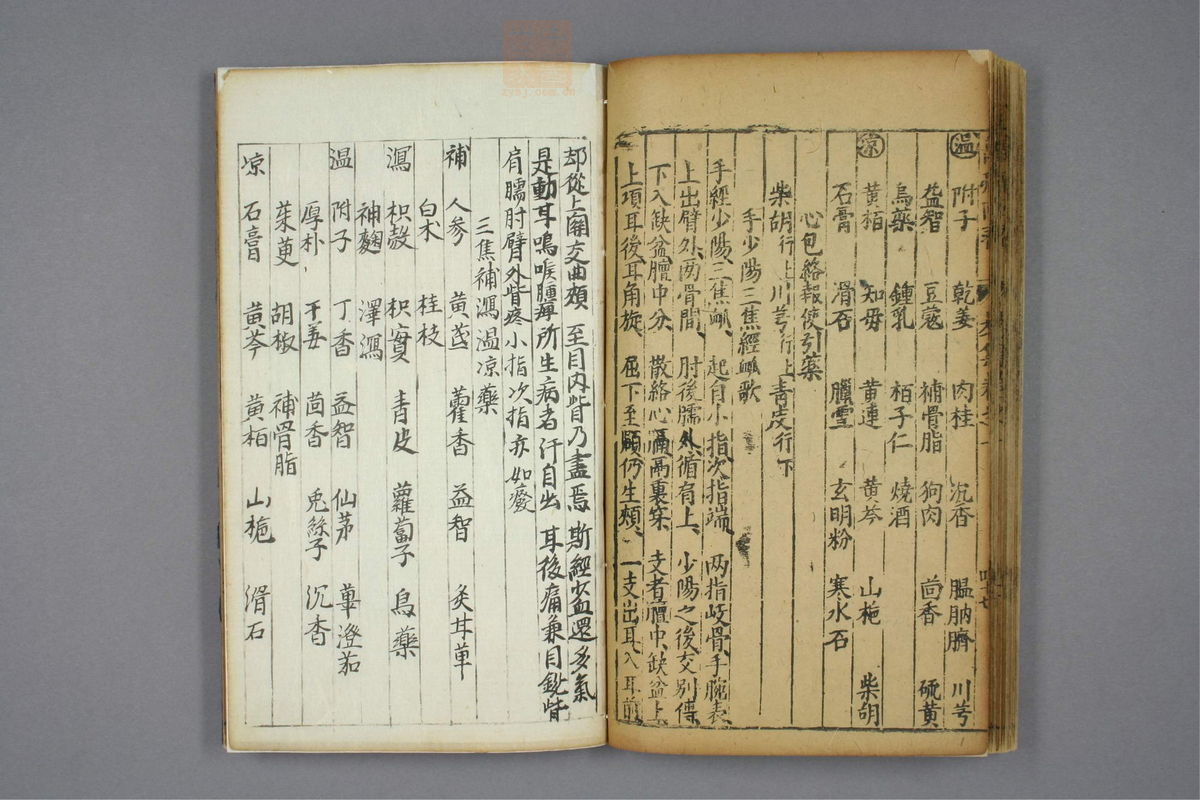 温 附子 乾姜 肉桂 沉香 膃肭臍 川芎
益智 豆蔻 補骨脂 狗肉 茴香 硫黄
烏藥 鍾乳 栢子仁 燒酒
凉 黄栢 知毋 黄連 黄芩 山栀 柴胡
石膏 滑石 臘雪 玄明粉 寒水石
心包絡報使引藥
柴胡行上 川芎行上 青皮行下
手少陽三焦經𧖴歌
手經少陽三焦𧖴 起自小指次指端 两指歧骨手腕表
上出臂外两骨間 肘後臑外循肩上 少陽之後交别傳
下入缺盆膻中分 散絡心 膈裏穿 支者膻中缺盆上
上項耳後耳角旋 屈下至 仍生頰 一支出耳入耳前
却從上關交曲頰 至目内眥乃盡焉 斯經少血還多氣
是動耳鳴喉腫痺 所生病者汗自出 耳後痛兼目銳眥
肩臑肘臂外皆疼 小指次指亦如癈
三焦補瀉温凉藥
補 人参 黄芪 藿香 益智 炙甘草
白术 桂枝
瀉 枳殼 枳實 青皮 蘿蔔子 烏藥
神麯 澤瀉
温 附子 丁香 益智 仙茅 蓽澄茄
厚朴 干姜 茴香 兎絲子 沉香
茱萸 胡椒 補骨脂
凉 石膏 黄芩 黄栢 山栀 滑石